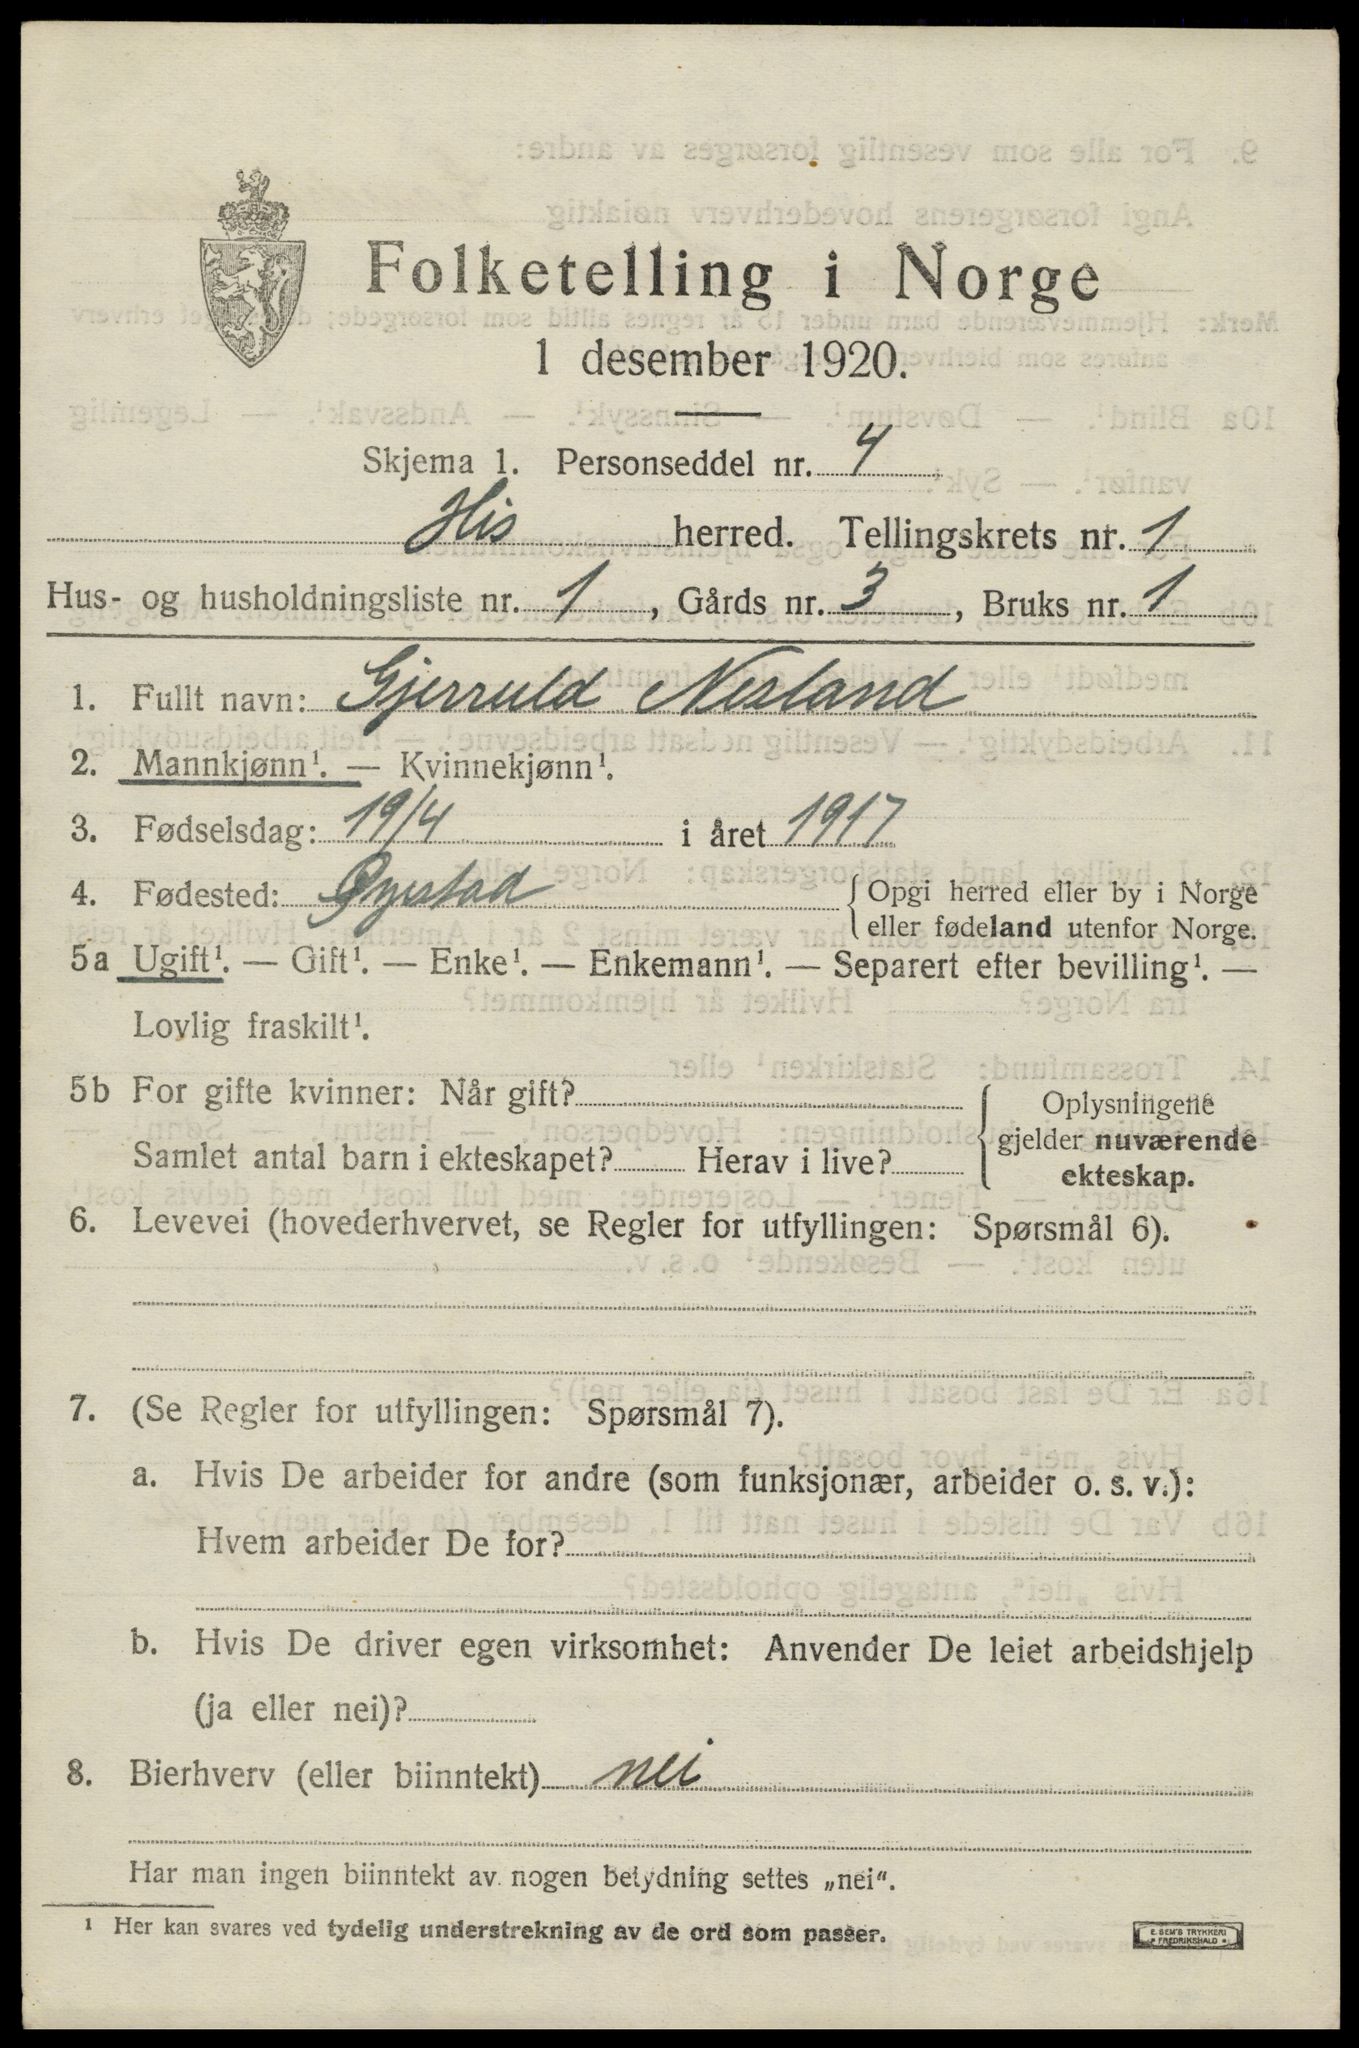 Folketelling i Norge
1 desember 1920.
Skjema 1. Personseddel nr. 4
His herred. Tellingskrets nr. 1
Hus- og husholdningsliste nr. 1, Gårds nr. 3, Bruks nr. 1
1. Fullt navn: Gjerruld Nesland
2. Mannkjønn¹. — Kvinnekjønn¹.
3. Fødselsdag: 19/4 i året 1917
4. Fødested: Øyestad { Opgi herred eller by i Norge
eller fødeland utenfor Norge.
5a Ugift¹. — Gift¹. — Enke¹. — Enkemann¹. — Separert efter bevilling¹. —
Lovlig fraskilt¹.
5b For gifte kvinner: Når gift?
Samlet antal barn i ekteskapet? Herav i live?
{ Oplysningene
gjelder nuværende
ekteskap.
6. Levevei (hovederhvervet, se Regler for utfyllingen: Spørsmål 6).
7. (Se Regler for utfyllingen: Spørsmål 7).
a. Hvis De arbeider for andre (som funksjonær, arbeider o. s. v.):
Hvem arbeider De for?
b. Hvis De driver egen virksomhet: Anvender De leiet arbeidshjelp
(ja eller nei)?
8. Bierhverv (eller biinntekt) nei
Har man ingen biinntekt av nogen betydning settes „nei“.
¹ Her kan svares ved tydelig understrekning av de ord som passer.
E. SEM'S TRYKKERI
FREDRIKSHALD